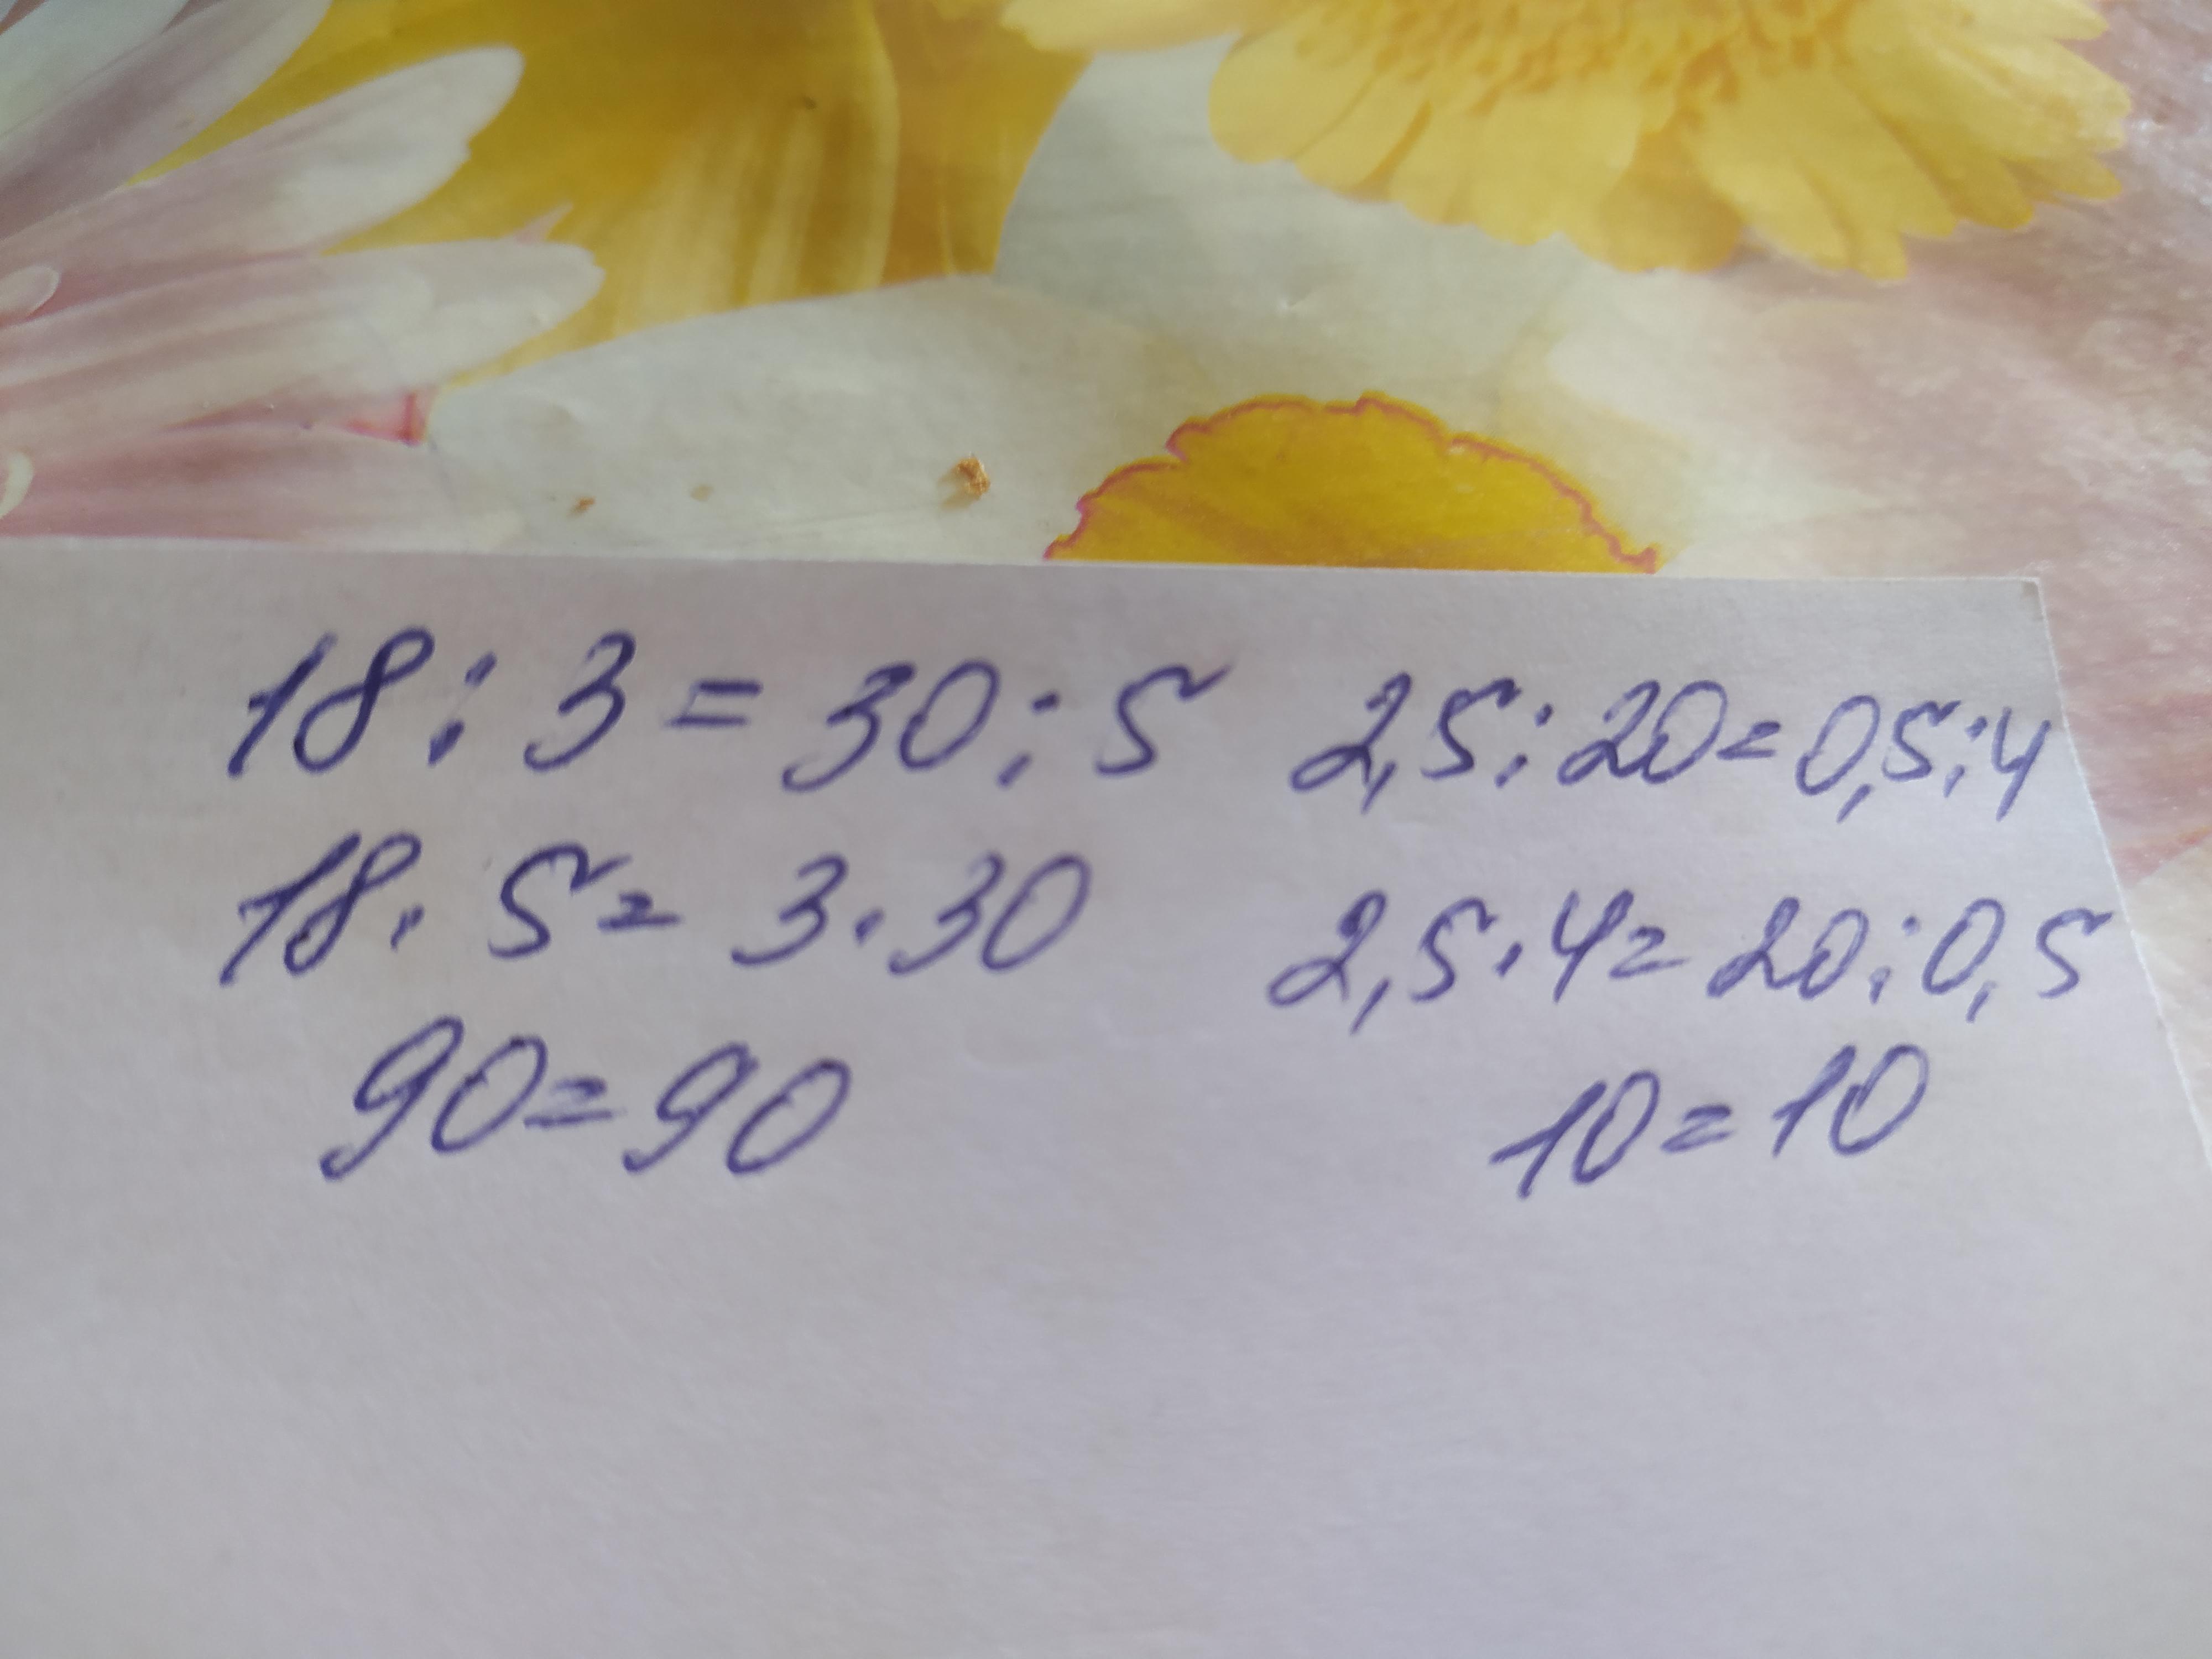 18 : 3 = 30 : 5
18 · 5 = 3 · 30
90 = 90
2,5 : 20 = 0,5 : 4
2,5 · 4 = 20 : 0,5
10 = 10